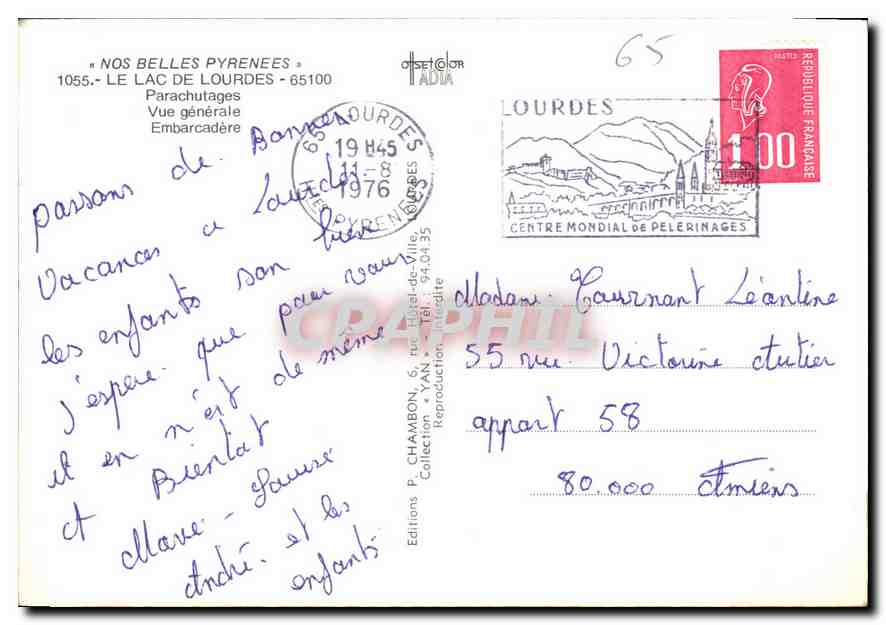 « NOS BELLES PYRENEES »
1055.- LE LAC DE LOURDES - 65100
Parachutages
Vue générale
Embarcadère
OFFSET COLOR
IADIA
65
LOURDES
CENTRE MONDIAL DE PELERINAGES
POSTES
REPUBLIQUE FRANÇAISE
1.00
65 LOURDES
19H45
11-8
1976
HTES PYRENEES
passons de Bonnes
Vacances a Lourdes
les enfants son bien
j'espere que pour vous
il en n'est de même
A Bientot
Marie-Louise
André et les
enfants
Editions P. CHAMBON, 6, rue Hôtel-de-Ville, LOURDES
Collection « YAN » - Tél. : 94.04.35
Reproduction interdite
CPAPHIL
Madame Tournant Léontine
55 rue Victorine Autier
appart 58
80.000 Amiens